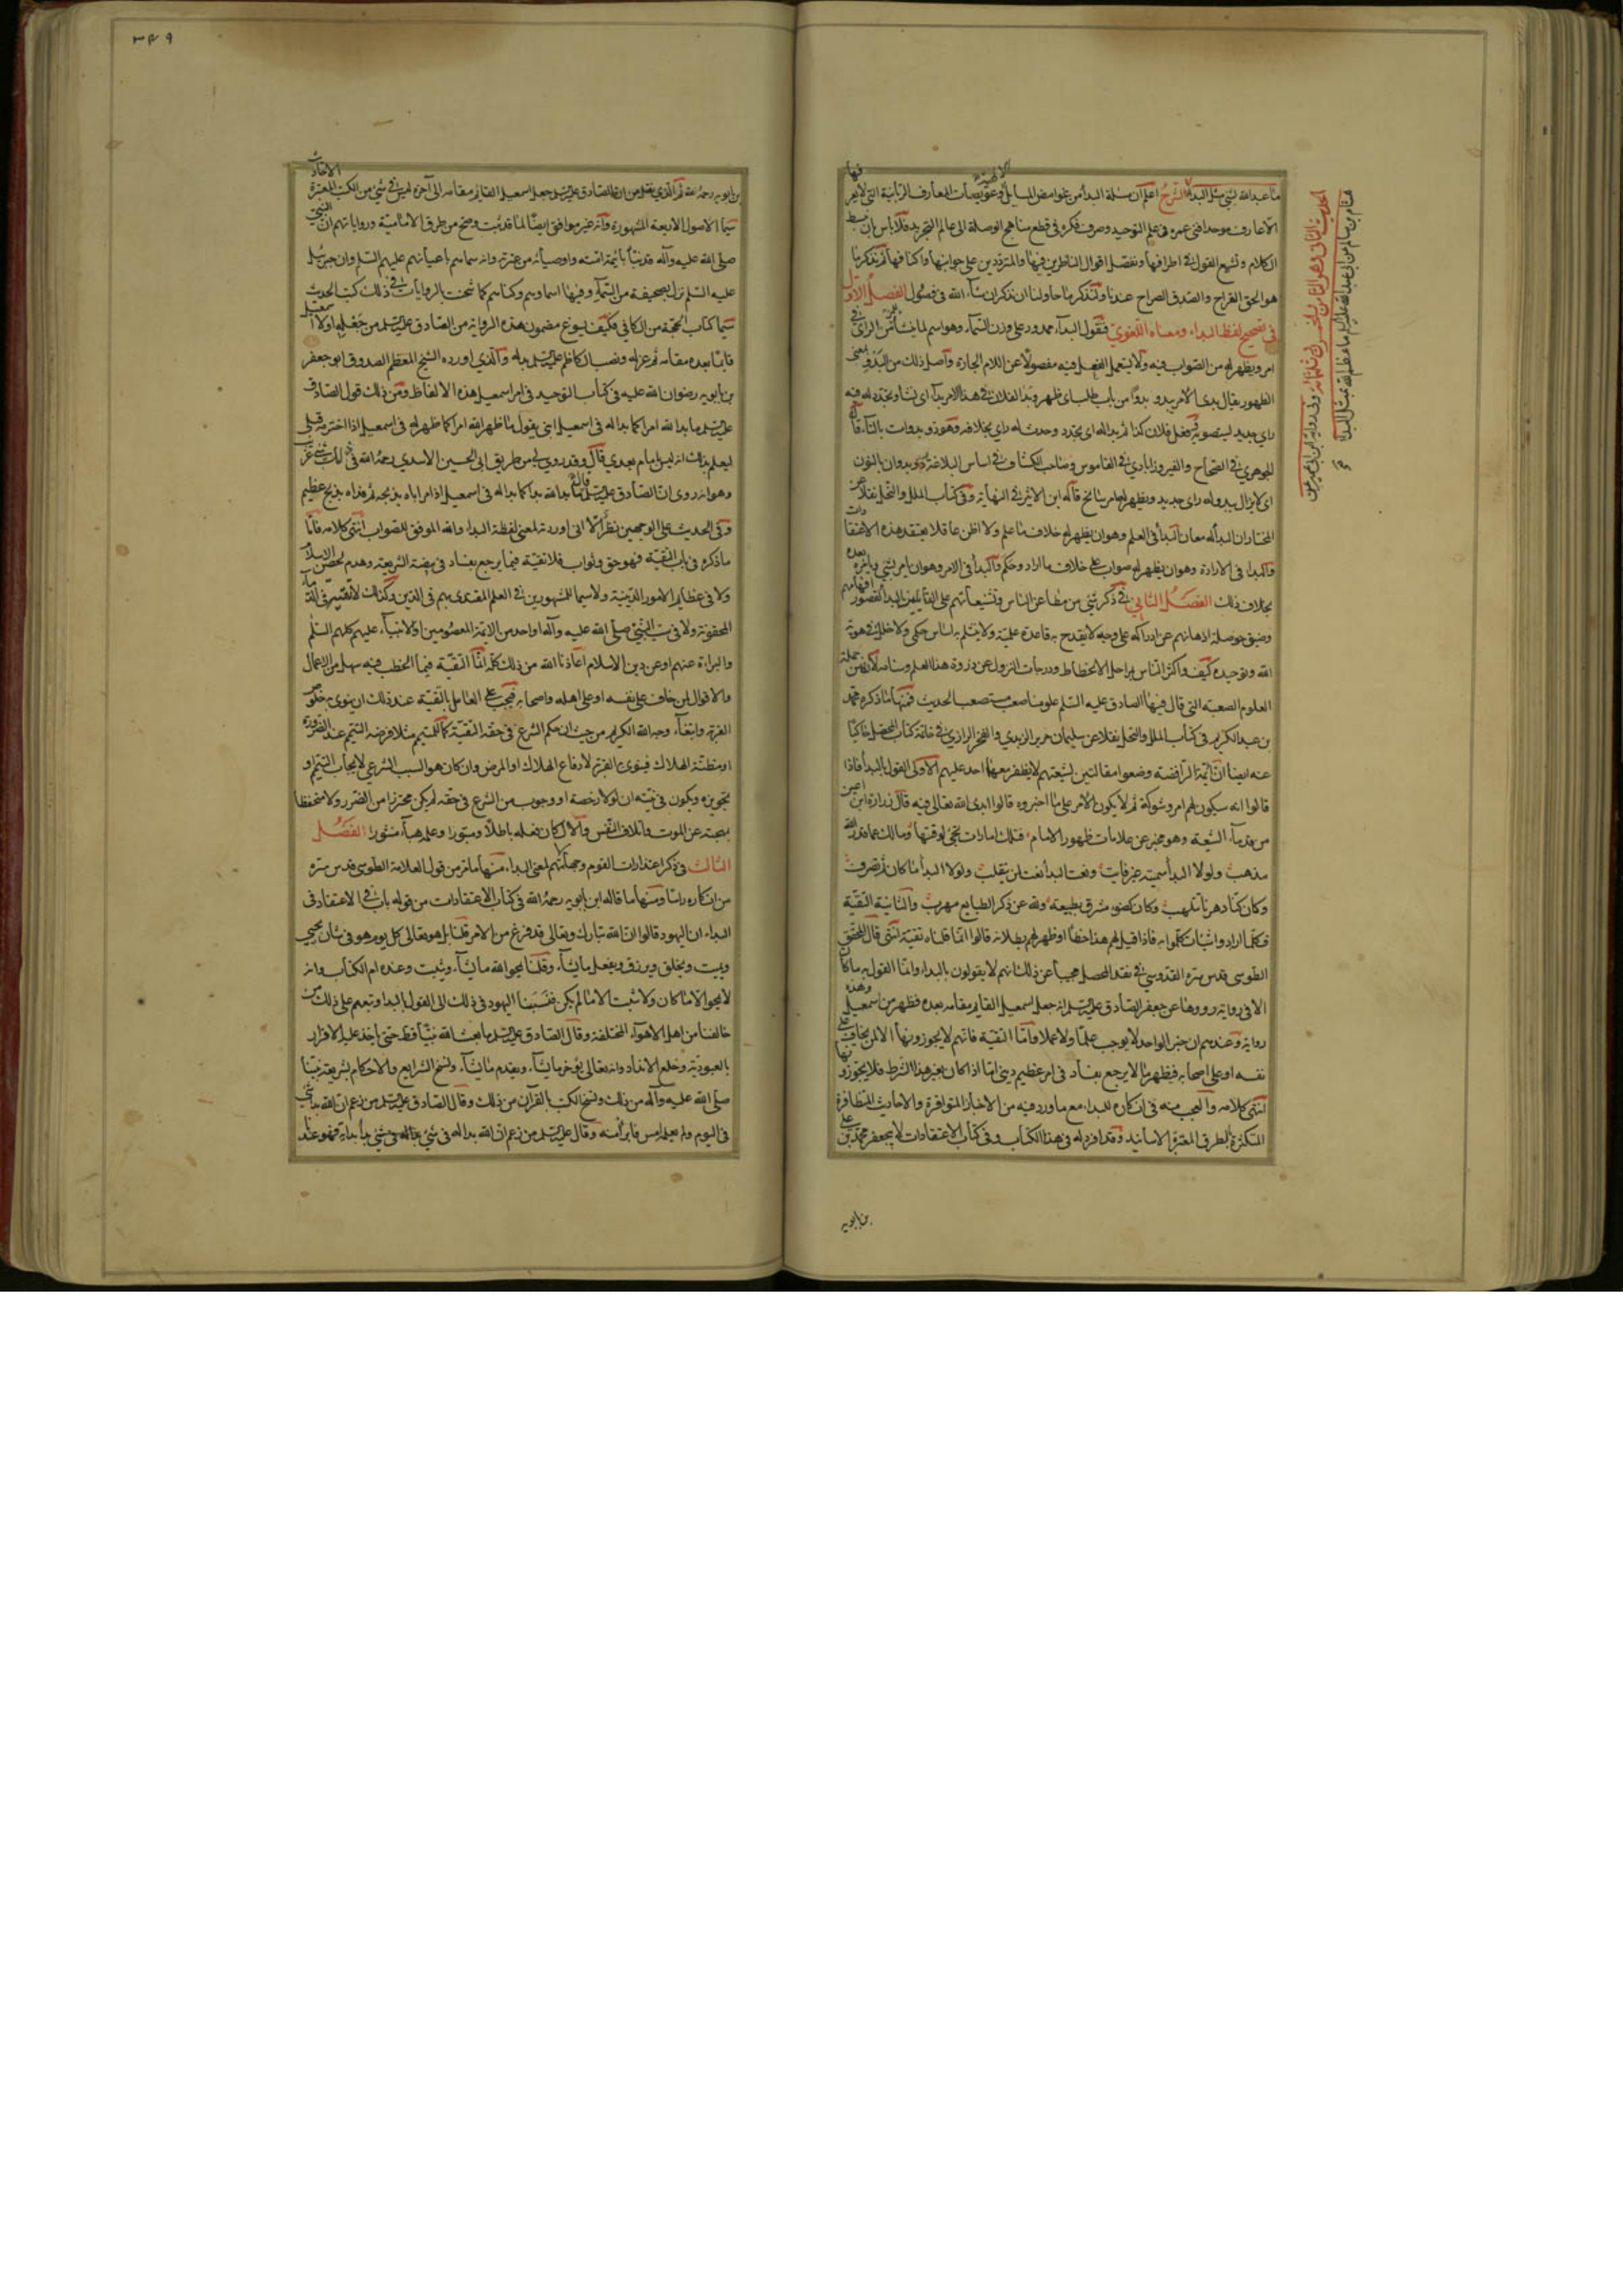 ما عبد الله بشئ مثل البداء الشرح اعلم ان مسئلة البداء من غوامض المسائل الالهية وعويصات المعارف الربانية التى لا يعرفها
الا عارف موحد افنى عمره فى علم التوحيد وصرف فكره فى قطع مناهج الوصلة الى عالم التجريد فلا بأس ان نبسط
الكلام ونشبع القول فى اطرافها ونفصل اقوال الناظرين فيها والمترددين على جوانبها واكنافها ثم نذكر ما
هو الحق القراح والصدق الصراح عندنا ولنذكر ما حاولنا ان نذكر ان شاء الله فى فصول الفصل الأول
فى تصحيح لفظ البداء ومعناه اللغوى فنقول البداء ممدود على وزن السماء وهو اسم لما ينشأ للمرء من الراى فى
امر ويظهر له من الصواب فيه ولا يستعمل الفعل فيه مفصولا عن اللام الجارة واصل ذلك من البدو بمعنى
الظهور يقال بدى الامر يبدو بدوا من باب طلب اى ظهر وبدا لفلان فى هذا الامر بداء اى نشأ وتجدد له فيه
راى جديد يستصوبه وفعل فلان كذا ثم بدا له اى تجدد وحدث له راى بخلافه وهو ذو بدوات بالتاء قاله
الجوهرى فى الصحاح والفيروزابادى فى القاموس وصاحب الكشاف فى اساس البلاغة وذو بدوان بالنون
اى لا يزال يبدو له راى جديد ويظهر له امر سانح قاله ابن الاثير فى النهاية وفى كتاب الملل والنحل نقلا عن
المختار ان البداء له معان البداء فى العلم وهو ان يظهر له خلاف ما علم ولا اظن عاقلا يعتقد هذه الاعتقادات
والبداء فى الارادة وهو ان يظهر له صواب على خلاف ما اراد وحكم والبداء فى الامر وهو ان يامر بشئ ويامر بعده
بخلاف ذلك الفصل الثانى فى ذكر شئ من مطاعن الناس وتشنيعاتهم على القائلين بالبداء لقصور افهامهم
وضيق حوصلة اذهانهم عن ادراكه على وجه لا يقدح به قاعدة علمية ولا ينثلم به اساس حكمى ولا خلل فى هوية
الله وتوحيده كيف واكثر الناس بمراحل الانحطاط ودرجات النزول عن ذروة هذا العلم وسنامه لانه من جملة
العلوم الصعبة التى قال فيها الصادق عليه السلم علومنا صعب مستصعب الحديث فمنها ما ذكره محمد
بن عبد الكريم فى كتاب الملل والنحل نقلا عن سليمان بن جرير الزيدى والفخر الرازى فى خاتمة كتاب المحصل حاكيا
عنه ايضا ان ائمة الرافضة وضعوا مقالتين لشيعتهم لا يظفر معهما احد عليهم الاولى القول بالبداء فاذا
قالوا انه سيكون لهم امر وشوكة ثم لا يكون الامر على ما اخبروه قالوا بدا لله تعالى فيه قال زرارة بن اعين
من قدماء الشيعة وهو مخبر عن علامات ظهور الامام فتلك امارات تجئ لوقتها ومالك عما قدر الله
مذهب ولولا البدا سميته غير فايت ونعت البدا نعت لمن يتقلب ولولا البدا ما كان ثم تصرف
وكان كنار دهرها تتلهب وكان كضوء مشرق بطبيعته ولله عن ذكر الطبايع مهرب والثانية التقية
فكلما ارادوا شيئا تكلموا به فاذا قيل لهم هذا خطأ او ظهر لهم بطلانه قالوا انما قلناه تقية انتهى قال المحقق
الطوسى قدس سره القدوسى فى نقد المحصل مجيبا عن ذلك انهم لا يقولون بالبداء وانما القول به ما كان
الا فى رواية رووها عن جعفر الصادق عليه السلم انه جعل اسمعيل القايم مقامه بعده فظهر من اسمعيل وهذه
رواية وعندهم ان خبر الواحد لا يوجب علما ولا عملا واما التقية فانهم لا يجوزونها الا لمن يخاف على
نفسه او على اصحابه فيظهر ما لا يرجع بفساد فى امر عظيم دينى اما اذا كان بغير هذا الشرط فلا يجوزونها
انتهى كلامه والعجب منه فى انكاره للبداء مع ما ورد فيه من الاخبار المتوافرة والاحاديث المتظافرة
المتكثرة الطرق المعتبرة الاسانيد وقد افرد له فى هذا الكتاب وفى كتاب الاعتقادات لابى جعفر محمد بن على
بن بابويه
الحديث الثانى وهو الثامن والخمسون وثلثمائة وفى رواية ابن ابى عمير عن
هشام بن سالم عن ابى عبد الله عليه السلم ما عظم الله بمثل البداء
٣٤٩
بن بابويه رحمه الله ثم الذى نقله من ان الصادق عليه السلم جعل اسمعيل القايم مقامه الى آخره ليس فى شئ من الكتب المعتبرة الاحاديث
سيما الاصول الاربعة المشهورة وانه غير موافق ايضا لما قد ثبت وصح من طرق الامامية ورواياتهم ان النبى
صلى الله عليه وآله قد نبأ بائمة امته واوصيائه من عترته وانه سماهم باعيانهم عليهم السلم وان جبرئيل
عليه السلم نزل بصحيفة من السماء وفيها اسماؤهم وكناهم كما شحنت بالروايات فى ذلك كتب الحديث
سيما كتاب الحجة من الكافى فكيف يسوغ مضمون هذه الرواية من الصادق عليه السلم من جعله اولا اسمعيل
قائما بعده مقامه ثم عزله ونصب الكاظم عليه السلم بدله والذى اورده الشيخ المعظم الصدوق ابو جعفر
بن بابويه رضوان الله عليه فى كتاب التوحيد فى امر اسمعيل هذه الالفاظ ومن ذلك قول الصادق
عليه السلم ما بدا لله امر كما بدا له فى اسمعيل ابنى يقول ما ظهر لله امر كما ظهر له فى اسمعيل اذ اخترمه قبلى
ليعلم بذلك انه ليس بامام بعدى قال وقد روى لى من طريق ابى الحسين الاسدى رحمه الله فى ذلك شئ غريب
وهو انه روى ان الصادق عليه السلم قال ما بدا لله بداء كما بدا له فى اسمعيل اذ امر اباه بذبحه ثم فداه بذبح عظيم
وفى الحديث على الوجهين نظر الا انى اوردته لمعنى لفظة البداء والله الموفق للصواب انتهى كلامه فاما
ما ذكره فى باب التقية فهو حق وثواب فلا تقية فيما يرجع بفساد فى بيضة الشريعة وهدم لحصن الاسلام
ولا فى عظايم الامور الدينية ولا سيما للمشهورين فى العلم المقتدى بهم فى الدين وكذلك لا تقية فى الدماء
المحقونة ولا فى سب النبى صلى الله عليه وآله او احد من الائمة المعصومين او الانبياء عليهم كلهم السلم
والبراءة عنهم او عن دين الاسلام اعاذنا الله من ذلك كله انما التقية فيما الخطب فيه سهل من الاعمال
والاقوال لمن خاف على نفسه او على اهله واصحابه فيجب على العامل بالتقية عند ذلك ان ينوى به خلوص
القربة وابتغاء وجه الله الكريم من حيث ان حكم الشرع فى حقه التقية كما للمتيمم مثلا فرضه التيمم عند الضرورة
او مظنة الهلاك فينوى القربة لا دفاع الهلاك او المرض وان كان هو السبب الشرعى لايجاب التيمم او
تجويزه ويكون فى نيته ان لولا رخصة او وجوب من الشرع فى حقه لم يكن محترزا من الضرر ولا متحفظا
بمهجته عن الموت واتلاف النفس والا لكان فعله باطلا ومتبورا وعمله هباء منثورا الفصل
الثالث فى ذكر اعتذارات القوم ومحاملهم لمعنى البداء منها ما مر من قول العلامة الطوسى قدس سره
من انكاره راسا ومنها ما قاله ابن بابويه رحمه الله فى كتاب الاعتقادات من قوله باب فى الاعتقاد فى
البداء ان اليهود قالوا ان الله تبارك وتعالى قد فرغ من الامر قلنا بل هو تعالى كل يوم هو فى شان يحيى
ويميت ويخلق ويرزق ويفعل ما يشاء وقلنا يمحو الله ما يشاء ويثبت وعنده ام الكتاب وانه
لا يمحو الا ما كان ولا يثبت الا ما لم يكن فنسبنا اليهود فى ذلك الى القول بالبداء وتبعهم على ذلك من
خالفنا من اهل الاهواء المختلفة وقال الصادق عليه السلم ما بعث الله نبيا قط حتى ياخذ عليه الاقرار
بالعبودية وخلع الانداد وانه تعالى يؤخر ما يشاء ويقدم ما يشاء ونسخ الشرايع والاحكام بشريعة نبينا
صلى الله عليه وآله من ذلك ونسخ الكتب بالقرآن من ذلك وقال الصادق عليه السلم من زعم ان الله بدا له فى شئ
فى اليوم ولم يعلمه امس فابرأ منه وقال عليه السلم من زعم ان الله بدا له فى شئ بداء ندامة فهو عندنا